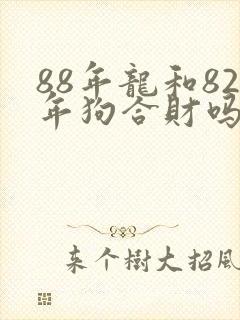 88年龍和82
年狗合財吗
来个樹大招風